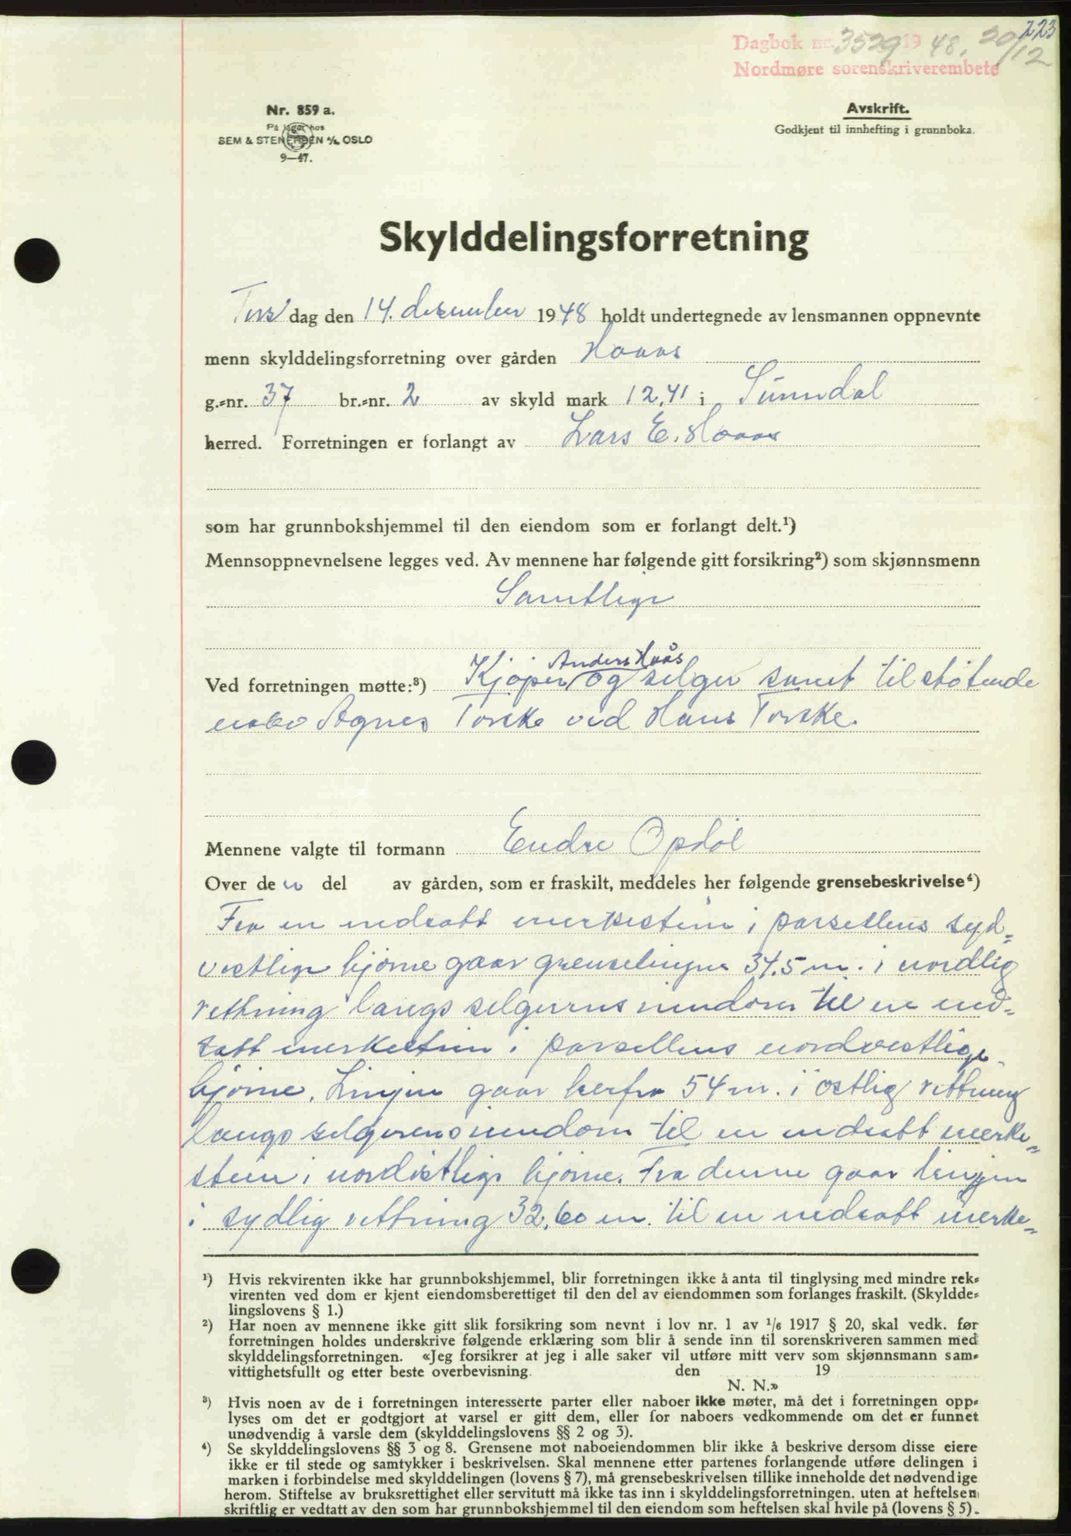 223
Dagbok nr. 3529 19 48. 20/12
Nordmøre sorenskriverembete
Nr. 859 a.
På lager hos
SEM & STENERSEN A/S, OSLO
9—47.
Avskrift.
Godkjent til innhefting i grunnboka.
Skylddelingsforretning
Tirs dag den 14. desember 1948 holdt undertegnede av lensmannen oppnevnte
menn skylddelingsforretning over gården Hoaas
g.=nr. 37 br.=nr. 2 av skyld mark 12,41 i Sunndal
herred. Forretningen er forlangt av Lars E. Hoaas
som har grunnbokshjemmel til den eiendom som er forlangt delt.¹)
Mennsoppnevnelsene legges ved. Av mennene har følgende gitt forsikring²) som skjønnsmenn
Samtlige
Anders Hoås
Ved forretningen møtte:³) Kjøper og selger samt tilstøtende
nabo Agnes Torske ved Hans Torske.
Mennene valgte til formann Endre Opdøl
Over de n del av gården, som er fraskilt, meddeles her følgende grensebeskrivelse⁴)
Fra en nedsatt merkestein i parsellens syd=
vestlige hjørne gaar grenselinjen 34.5 m. i nordlig
rettning langs selgerens eiendom til en ned=
satt merkestein i parsellens nordvestlige
hjørne. Linjen gaar herfra 54 m. i østlig rettning
langs selgerens eiendom til en nedsatt merke=
stein i nordøstlige hjørne. Fra denne gaar linjen
i sydlig rettning 32,60 m. til en nedsatt merke=
¹) Hvis rekvirenten ikke har grunnbokshjemmel, blir forretningen ikke å anta til tinglysing med mindre rek=
virenten ved dom er kjent eiendomsberettiget til den del av eiendommen som forlanges fraskilt. (Skyldde=
lingslovens § 1.)
²) Har noen av mennene ikke gitt slik forsikring som nevnt i lov nr. 1 av 1/6 1917 § 20, skal vedk. før
forretningen holdes underskrive følgende erklæring som blir å sende inn til sorenskriveren sammen med
skylddelingsforretningen. «Jeg forsikrer at jeg i alle saker vil utføre mitt verv som skjønnsmann sam=
vittighetsfullt og etter beste overbevisning. den 19
N. N.»
³) Hvis noen av de i forretningen interesserte parter eller naboer ikke møter, må det i forretningen opp=
lyses om det er godtgjort at varsel er gitt dem, eller for naboers vedkommende om det er funnet
unødvendig å varsle dem (skylddelingslovens §§ 2 og 3).
⁴) Se skylddelingslovens §§ 3 og 8. Grensene mot naboeiendommen blir ikke å beskrive dersom disse eiere
ikke er til stede og samtykker i beskrivelsen. Skal mennene etter partenes forlangende utføre delingen i
marken i forbindelse med skylddelingen (lovens § 7), må grensebeskrivelsen tillike inneholde det nødvendige
herom. Stiftelse av bruksrettighet eller servitutt må ikke tas inn i skylddelingsforretningen, uten at heftelsen
skriftlig er vedtatt av den som har grunnbokshjemmel til den eiendom som heftelsen skal hvile på (lovens § 5).